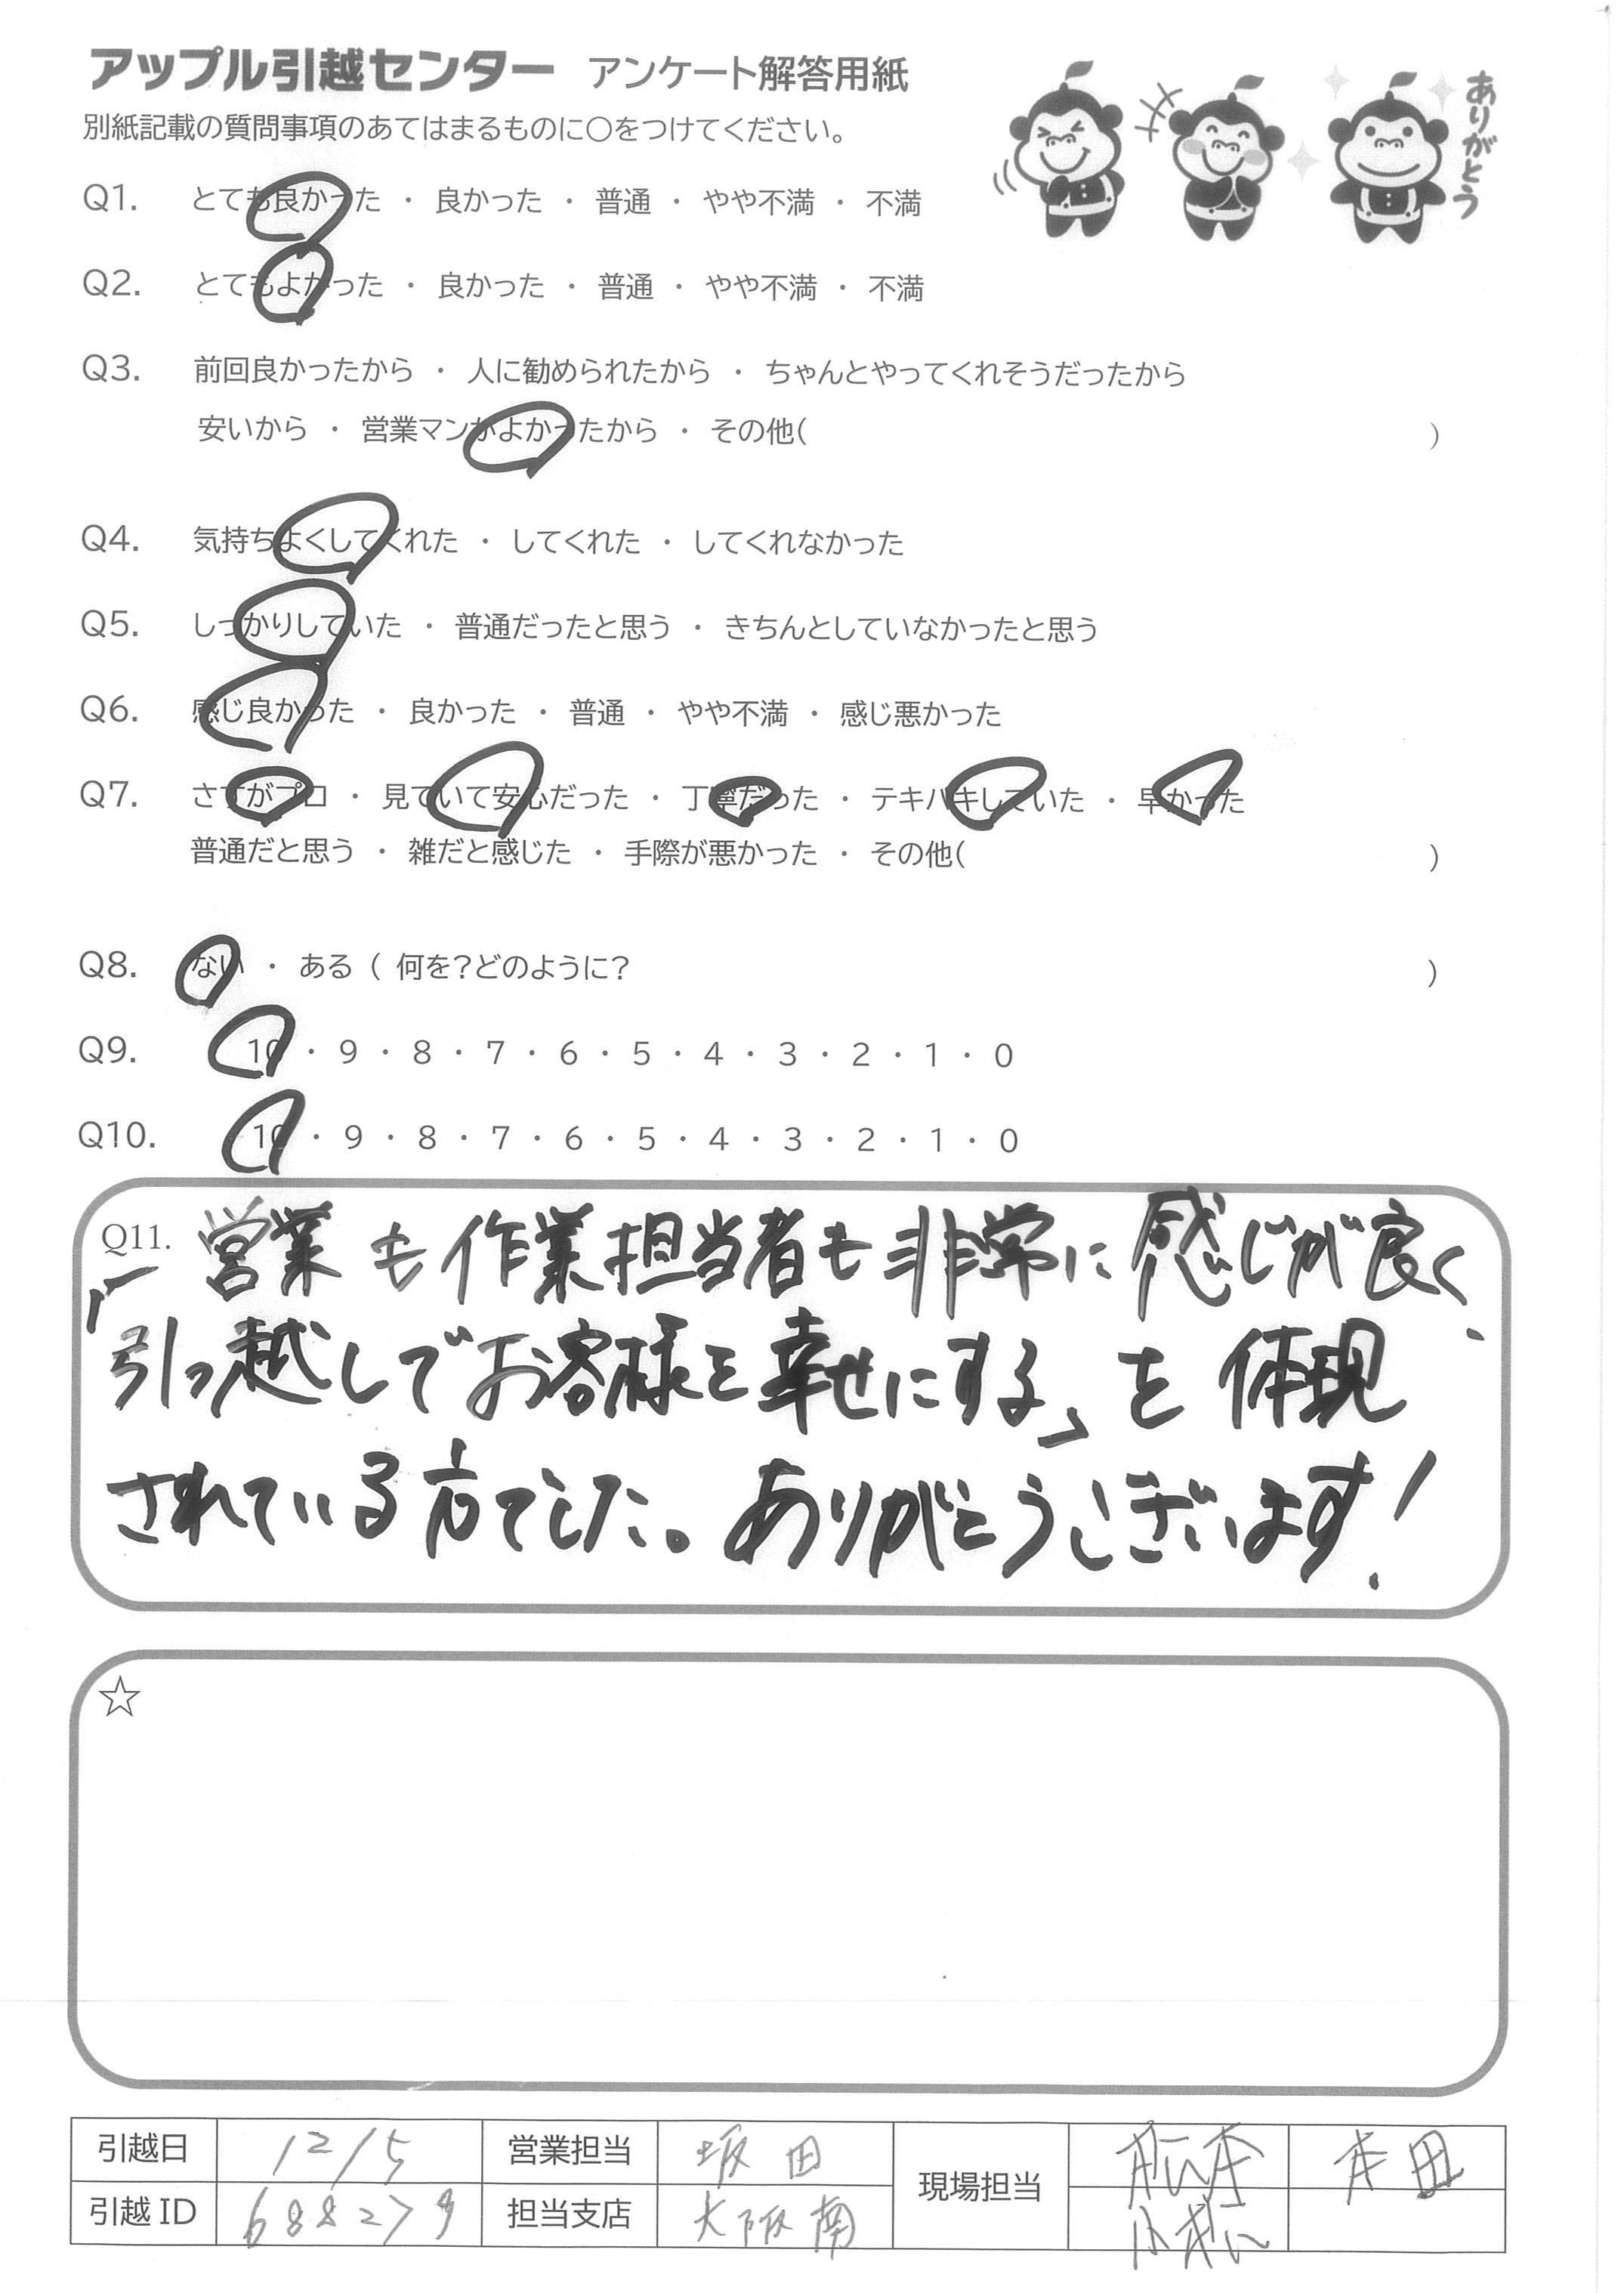 アップル引越センター アンケート解答用紙
別紙記載の質問事項のあてはまるものに○をつけてください。
ありがとう
Q1. とても良かった ・ 良かった ・ 普通 ・ やや不満 ・ 不満
Q2. とてもよかった ・ 良かった ・ 普通 ・ やや不満 ・ 不満
Q3. 前回良かったから ・ 人に勧められたから ・ ちゃんとやってくれそうだったから
安いから ・ 営業マンがよかったから ・ その他( )
Q4. 気持ちよくしてくれた ・ してくれた ・ してくれなかった
Q5. しっかりしていた ・ 普通だったと思う ・ きちんとしていなかったと思う
Q6. 感じ良かった ・ 良かった ・ 普通 ・ やや不満 ・ 感じ悪かった
Q7. さすがプロ ・ 見ていて安心だった ・ 丁寧だった ・ テキパキしていた ・ 早かった
普通だと思う ・ 雑だと感じた ・ 手際が悪かった ・ その他( )
Q8. ない ・ ある ( 何を?どのように? )
Q9. 10 ・ 9 ・ 8 ・ 7 ・ 6 ・ 5 ・ 4 ・ 3 ・ 2 ・ 1 ・ 0
Q10. 10 ・ 9 ・ 8 ・ 7 ・ 6 ・ 5 ・ 4 ・ 3 ・ 2 ・ 1 ・ 0
Q11. 営業も作業担当者も非常に感じが良く、
「引っ越しでお客様を幸せにする」を体現
されている方でした。ありがとうございます!
☆
引越日 12/5 営業担当 坂田 現場担当 松本 本田
引越ID 688279 担当支店 大阪南 小松